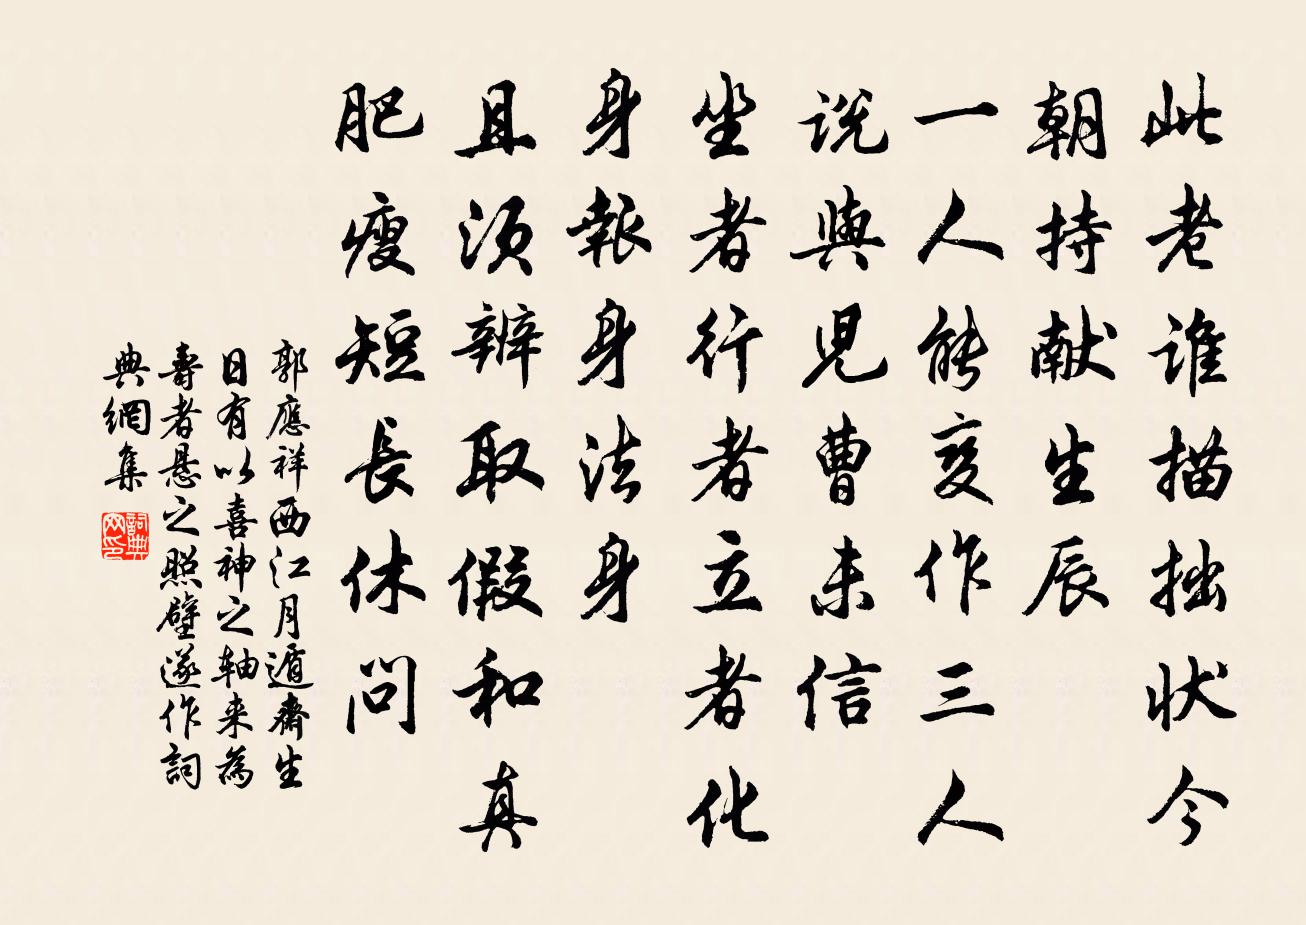 此老谁描拙状今
朝持献生辰
一人能变作三人
説與児曹未信
坐者行者立者化
身報身身法身
且须辨取假和真
肥瘦短長休问
郭應祥西江月遁齋生
日有以喜神之轴来為
壽者悬之照壁遂作詞
典網集
詞典